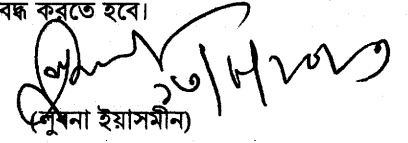 বদ্ধ করতে হবে।
(লুবনা ইয়াসমীন)